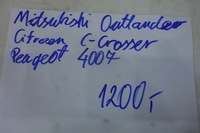 Mitsubishi Outlander
Citroen C-Crosser
Peageot 4007
1200,-